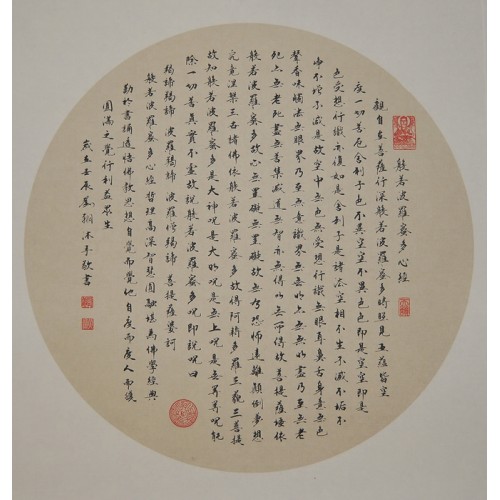 般若波羅蜜多心經
觀自在菩薩行深般若波羅蜜多時照見五蘊皆空
度一切苦厄舍利子色不異空空不異色色即是空空即是
色受想行識亦復如是舍利子是諸法空相不生不滅不垢不
淨不增不減是故空中無色無受想行識無眼耳鼻舌身意無色
聲香味觸法無眼界乃至無意識界無無明亦無無明盡乃至無老
死亦無老死盡無苦集滅道無智亦無得以無所得故菩提薩埵依
般若波羅蜜多故心無罣礙無罣礙故無有恐怖遠離顛倒夢想
究竟涅槃三世諸佛依般若波羅蜜多故得阿耨多羅三藐三菩提
故知般若波羅蜜多是大神咒是大明咒是無上咒是無等等咒能
除一切苦真實不虛故說般若波羅蜜多咒即說咒曰
揭諦揭諦 波羅揭諦 波羅僧揭諦 菩提薩婆訶
般若波羅蜜多心經哲理高深智慧圓融堪為佛學經典
勤於書誦通悟佛教思想自覺而覺他自度而度人而後
圓滿之覺行利益眾生
歲在壬辰 沐手敬書